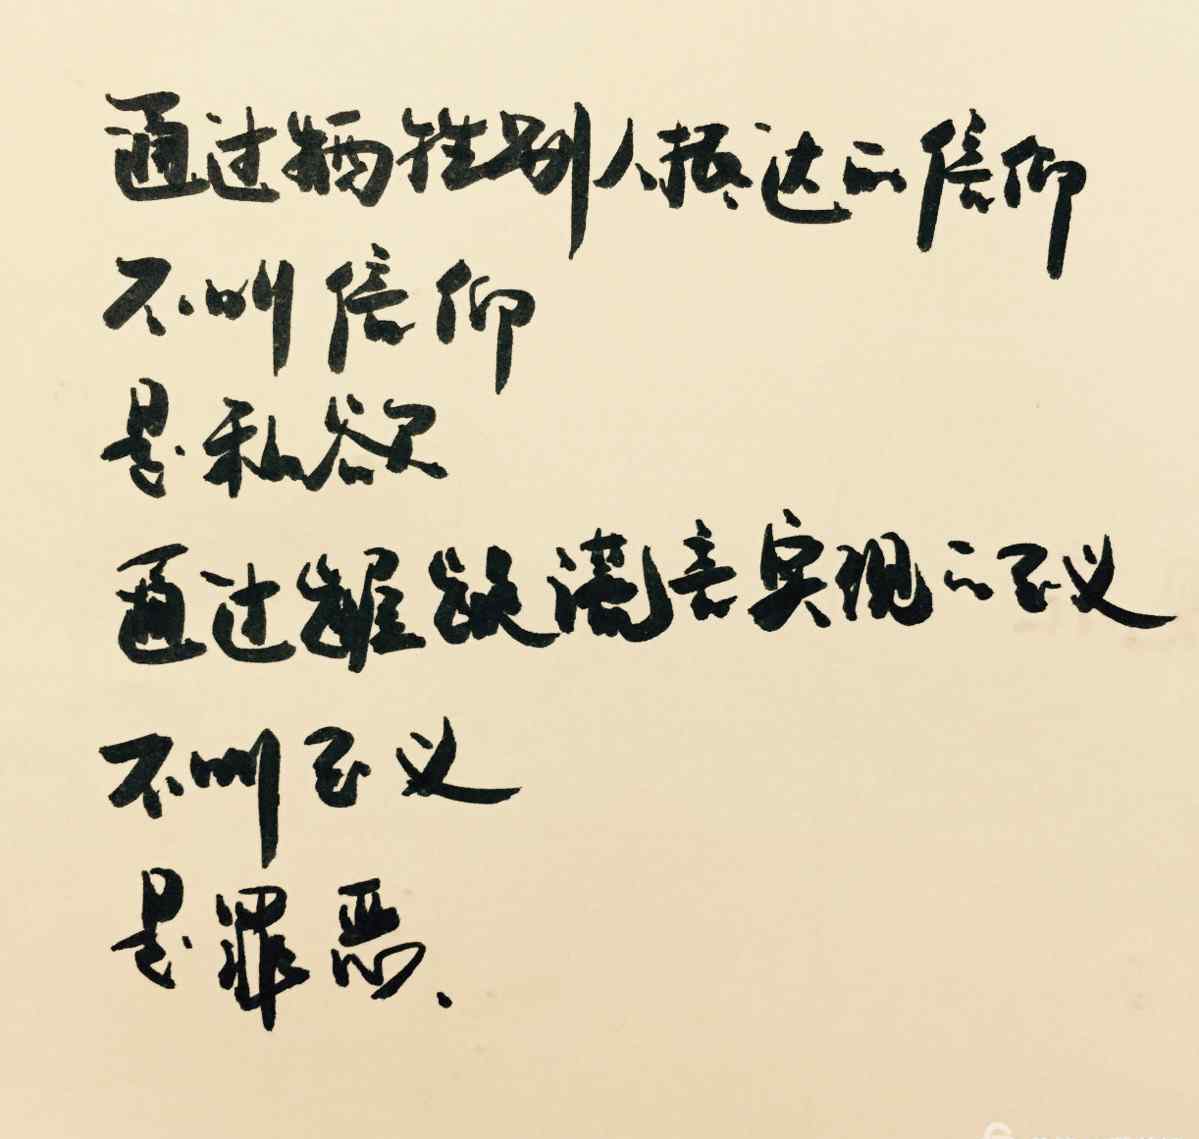 通过牺牲别人抵达的信仰
不叫信仰
是私欲
通过谎言实现的正义
不叫正义
是罪恶.